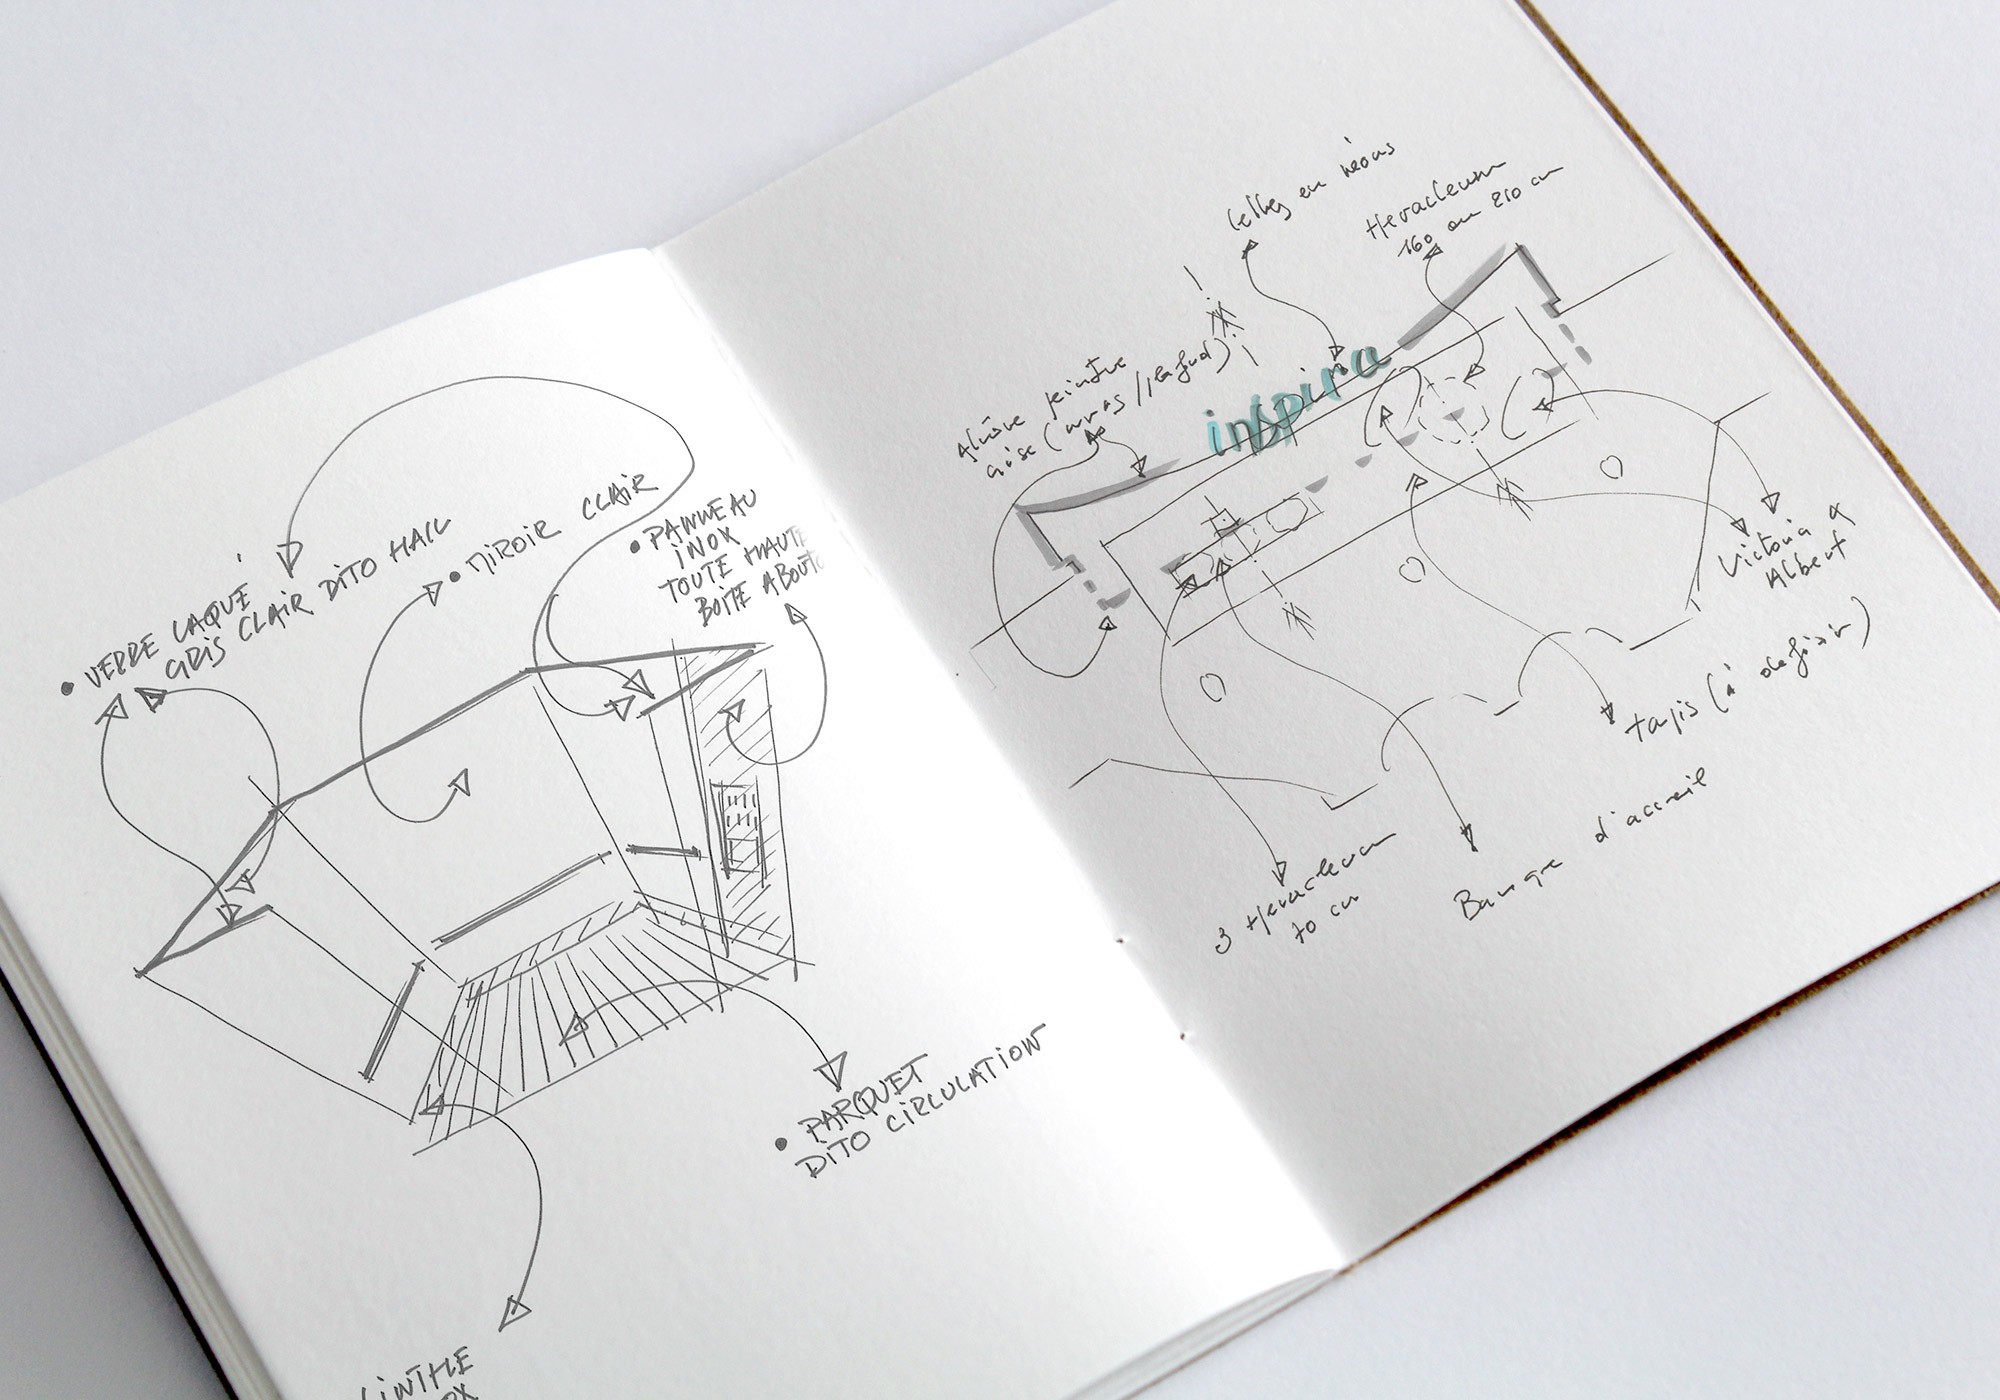 • VERRE LAQUÉ
GRIS CLAIR DITO HALL
• MIROIR CLAIR
• PANNEAU
INOX
TOUTE HAUTE
BOITE ABOUTO
• PARQUET
DITO CIRCULATION
PLINTHE
lettres en néons
Heracleum
160 ou 210 cm
Alcôve peinture
grise (murs/plafond)
inspira
Victoria &
Albert
tapis (à définir)
Banque d'accueil
3 Heracleum
70 cm